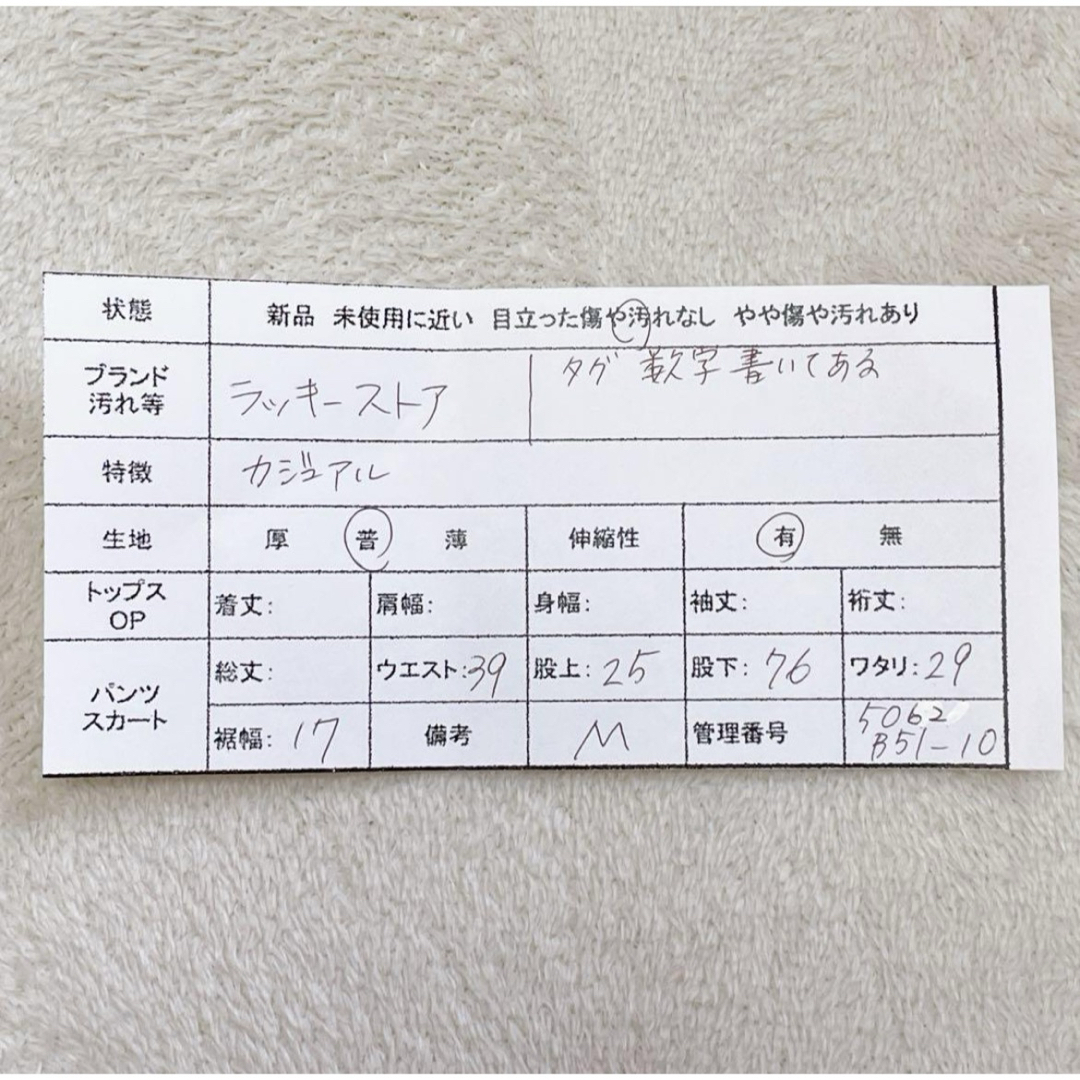 状態 新品 未使用に近い 目立った傷や汚れなし やや傷や汚れあり
ブランド 汚れ等 ラッキーストア タグ 数字 書いてある
特徴 カジュアル
生地 厚 普 薄 伸縮性 有 無
トップス OP 着丈: 肩幅: 身幅: 袖丈: 裄丈:
パンツ スカート 総丈: ウエスト:39 股上:25 股下:76 ワタリ:29
裾幅:17 備考 M 管理番号 5062
B51-10